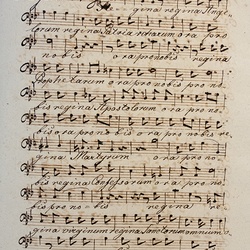 Re - gina regina Ange
lorum regina Patriarcharum ora pro
nobis ora pro nobis regina
Prophetarum ora pro nobis pro no
bis regina Apostolorum ora pro no
bis ora pro nobis ora pro nobis re
gina Martyrum ora pro no
bis regina Confessorum ora pro no
bis pro nobis regina re
gina virginum regina Sanctorum omnium o